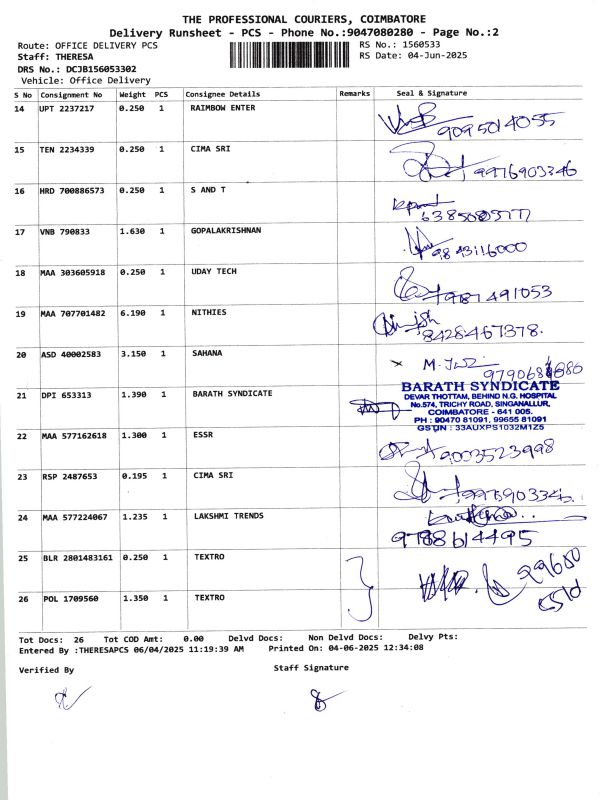 THE PROFESSIONAL COURIERS, COIMBATORE
Delivery Runsheet - PCS - Phone No.:9047080280 - Page No.:2
Route: OFFICE DELIVERY PCS RS No.: 1560533
Staff: THERESA RS Date: 04-Jun-2025
DRS No.: DCJB156053302
Vehicle: Office Delivery
S No Consignment No Weight PCS Consignee Details Remarks Seal & Signature
14 UPT 2237217 0.250 1 RAIMBOW ENTER
9095014055
15 TEN 2234339 0.250 1 CIMA SRI
9976903346
16 HRD 700886573 0.250 1 S AND T
17 VNB 790833 1.630 1 GOPALAKRISHNAN
9843116000
18 MAA 303605918 0.250 1 UDAY TECH
19 MAA 707701482 6.190 1 NITHIES
8428467378.
20 ASD 40002583 3.150 1 SAHANA
21 DPI 653313 1.390 1 BARATH SYNDICATE
BARATH SYNDICATE
DEVAR THOTTAM, BEHIND N.G. HOSPITAL
No.574, TRICHY ROAD, SINGANALLUR,
COIMBATORE - 641 005.
PH : 90470 81091, 99655 81091
GSTIN : 33AUXPS1032M1Z5
22 MAA 577162618 1.300 1 ESSR
9003523998
23 RSP 2487653 0.195 1 CIMA SRI
24 MAA 577224067 1.235 1 LAKSHMI TRENDS
9788614495
25 BLR 2801483161 0.250 1 TEXTRO
26 POL 1709560 1.350 1 TEXTRO
Tot Docs: 26 Tot COD Amt: 0.00 Delvd Docs: Non Delvd Docs: Delvy Pts:
Entered By :THERESAPCS 06/04/2025 11:19:39 AM Printed On: 04-06-2025 12:34:08
Verified By Staff Signature